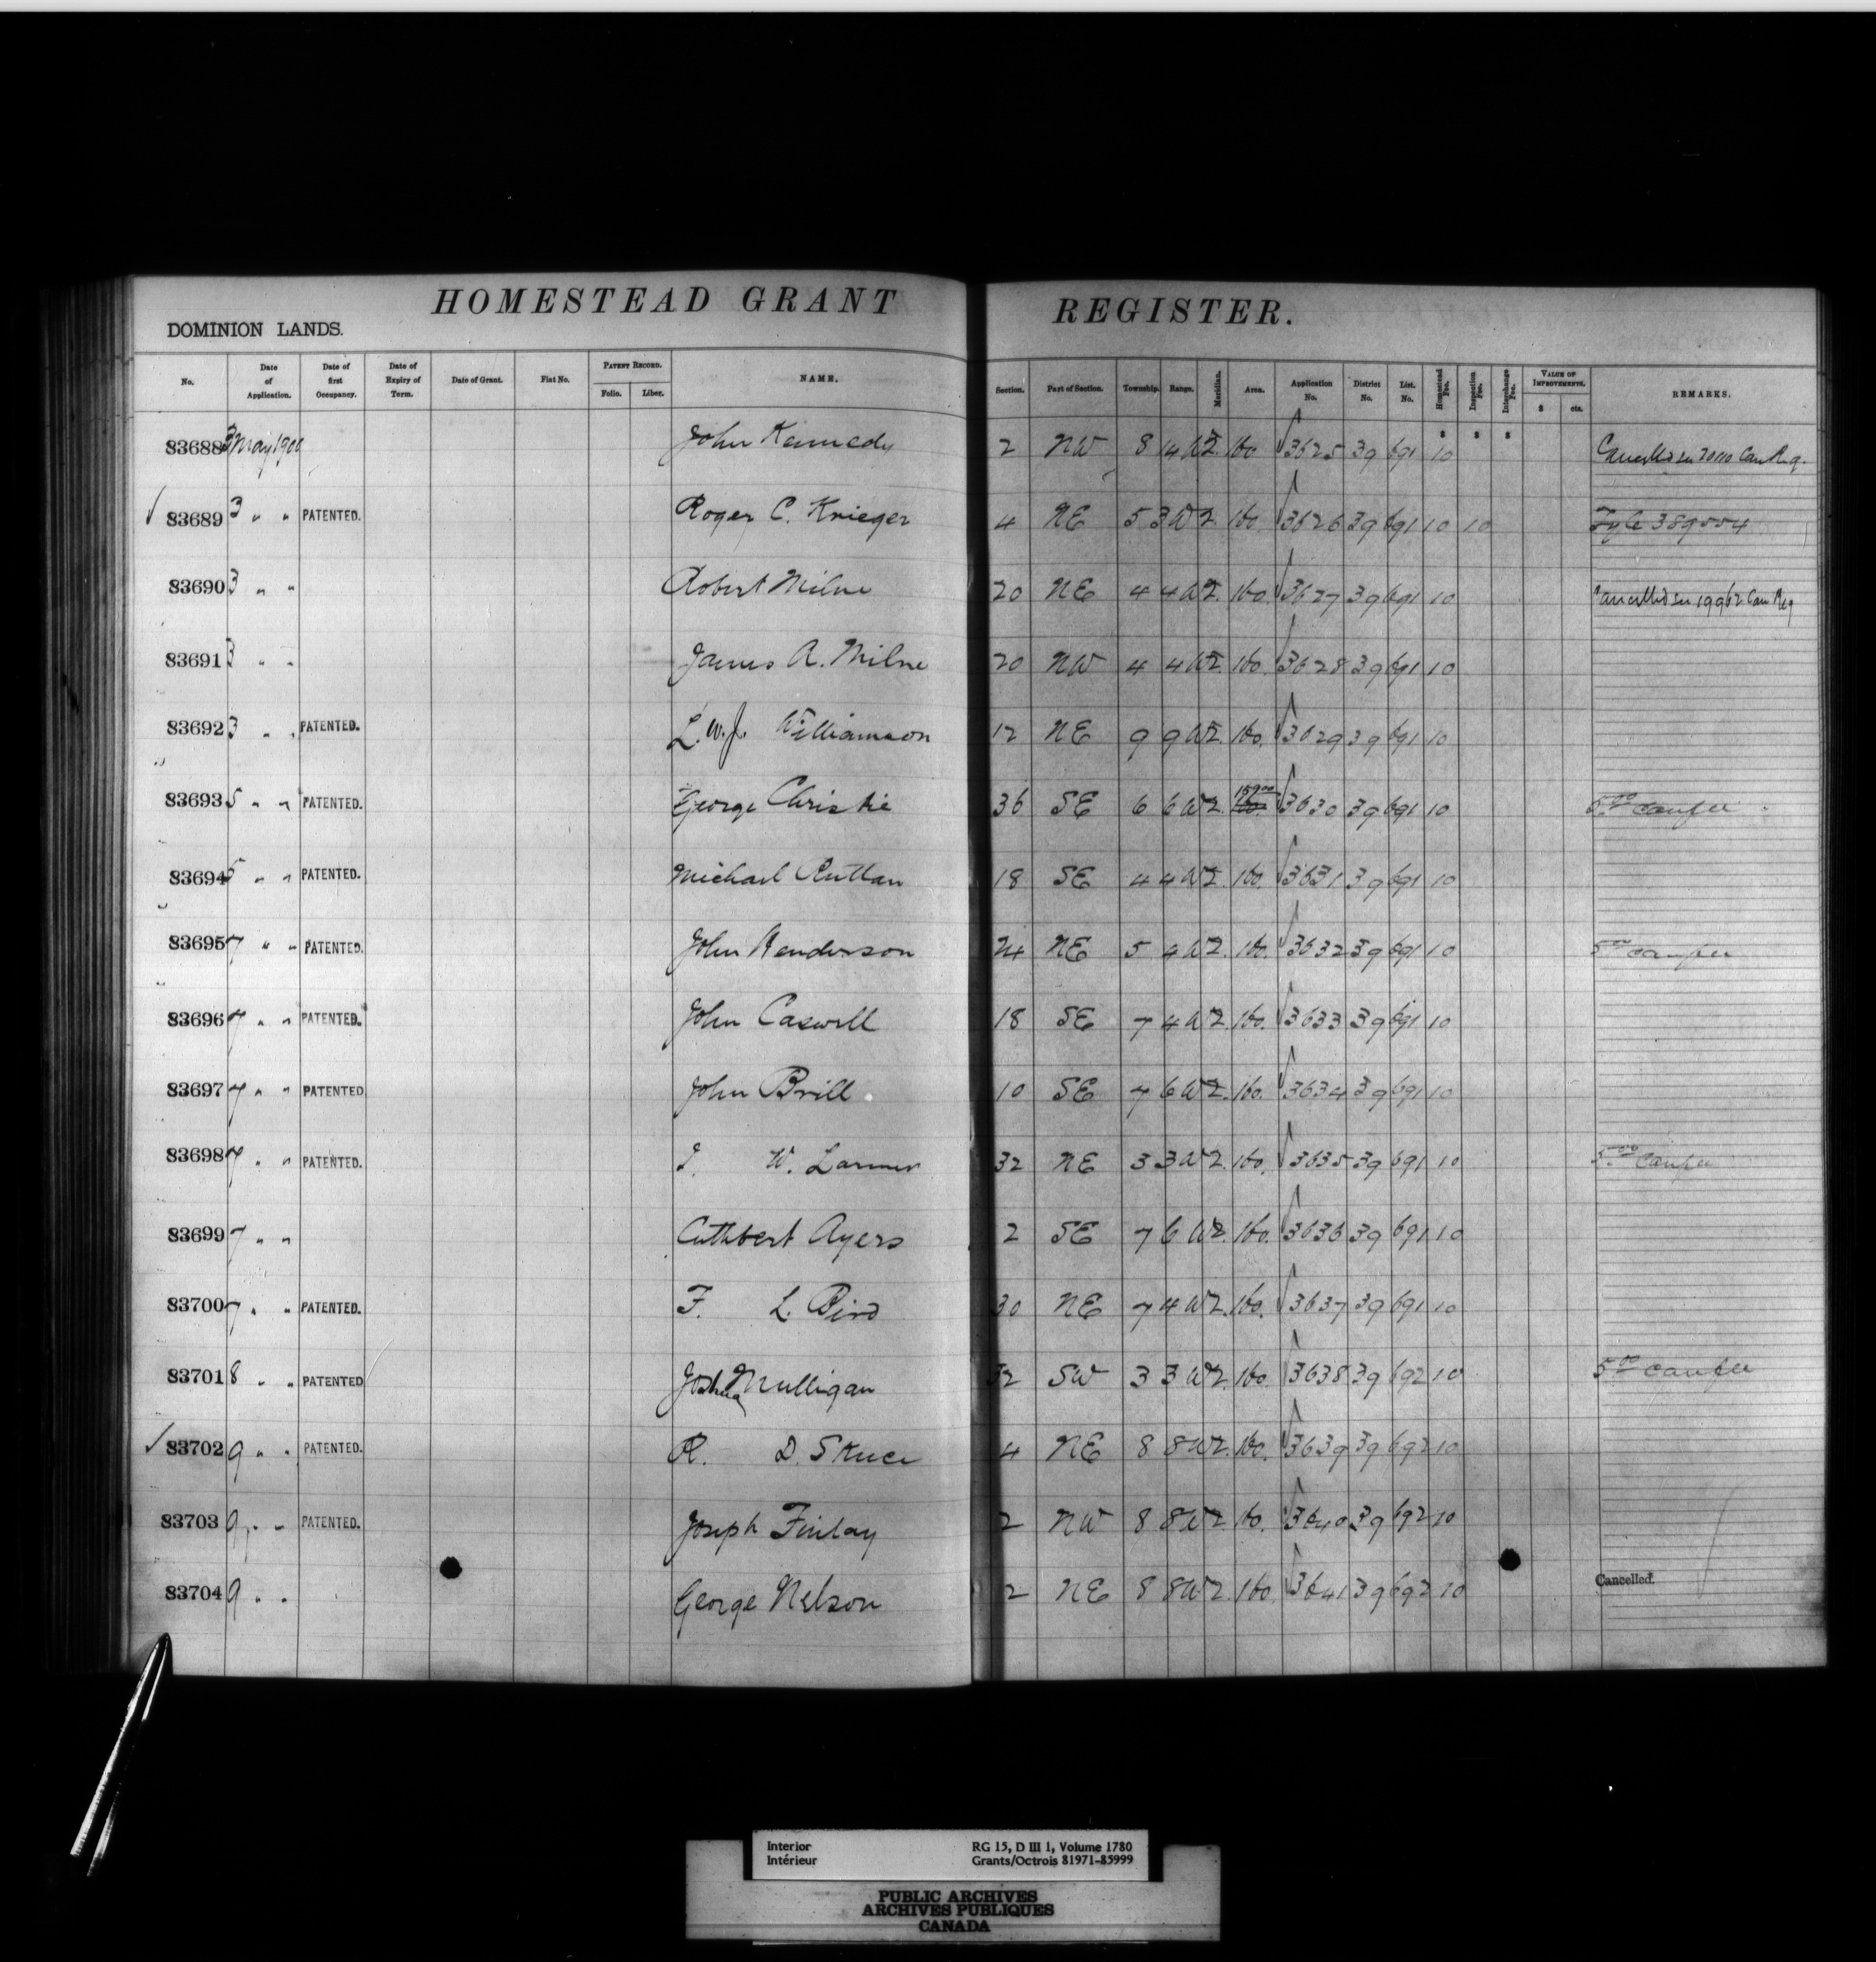 HOMESTEAD GRANT REGISTER.
DOMINION LANDS.
No. Date of Application. Date of first Occupancy. Date of Expiry of Term. Date of Grant. Fiat No. PATENT RECORD. Folio. Liber. NAME. Section. Part of Section. Township. Range. Meridian. Area. Application No. District No. List. No. Homestead Fee. Inspection Fee. Interchange Fee. VALUE OF IMPROVEMENTS. $ cts. REMARKS.
$ $ $
83688 3 May 1900 John Kennedy 2 NW 8 14 W 2. 160 3625 39 691 10 Can Reg.
83689 3 " " PATENTED. Roger C. Krieger 4 NE 5 3 W 2. 160. 3626 39 691 10 10 Fyle 389554
83690 3 " " Robert Milne 20 NE 4 4 W 2. 160. 3627 39 691 10 19962 Can Reg
83691 3 " " James A. Milne 20 NW 4 4 W 2. 160. 3628 39 691 10
83692 3 " " PATENTED. L. W. J. Williamson 12 NE 9 9 W 2. 160. 3629 39 691 10
83693 5 " " PATENTED. George Christie 36 SE 6 6 W 2. 159.00 160. 3630 39 691 10 5.00 canfee
83694 5 " " PATENTED. Michael Ruttan 18 SE 4 4 W 2. 160. 3631 39 691 10
83695 7 " " PATENTED. John Henderson 24 NE 5 4 W 2. 160. 3632 39 691 10 5.00 canfee
83696 7 " " PATENTED. John Caswell 18 SE 7 4 W 2. 160. 3633 39 691 10
83697 7 " " PATENTED John Brill. 10 SE 7 6 W 2. 160. 3634 39 691 10
83698 7 " " PATENTED. W. Larmer 32 NE 3 3 W 2. 160. 3635 39 691 10 5.00 canfee
83699 7 " " Cuthbert Ayers 2 SE 7 6 W 2. 160. 3636 39 691 10
83700 7 " " PATENTED. F. L. Bird 30 NE 7 4 W 2. 160. 3637 39 691 10
83701 8 " " PATENTED Joshua Mulligan 32 SW 3 3 W 2. 160. 3638 39 692 10 5.00 canfee
83702 9 " " PATENTED. R. D. Skuce 4 NE 8 8 W 2. 160. 3639 39 692 10
83703 9 " " PATENTED. Joseph Finlay 2 NW 8 8 W 2 160. 3640 39 692 10
83704 9 " " George Nelson 2 NE 8 8 W. 2. 160 3641 39 692 10 Cancelled.
Interior RG 15, D III 1, Volume 1780
Intérieur Grants/Octrois 81971-85999
PUBLIC ARCHIVES
ARCHIVES PUBLIQUES
CANADA